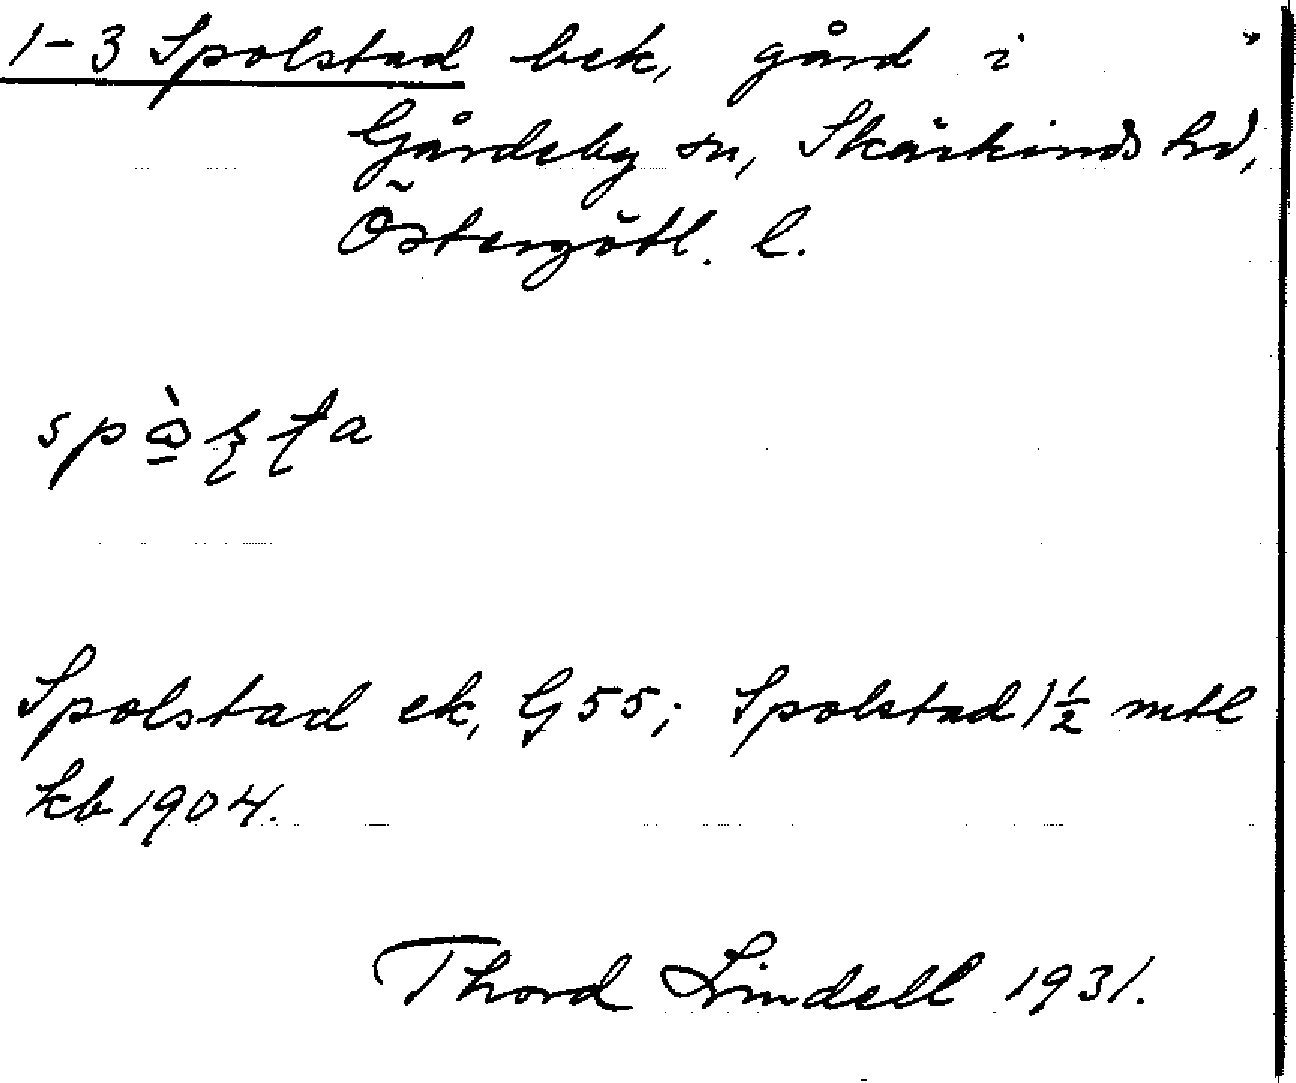 1-3 Spolstad bek, gård i
Gårdeby sn, Skärkinds hd,
Östergötl. l.
Spolstad ek, G55; Spolstad 1 1/2 mtl
kb 1904.
Thord Lindell 1931.